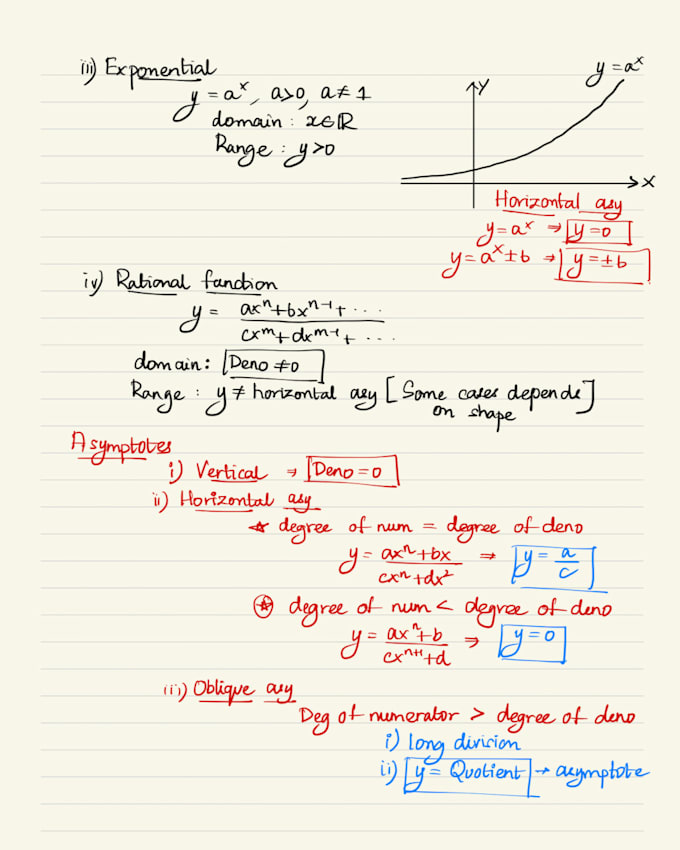 iii) Exponential
y = aˣ, a>0, a≠1
domain : x∈ℝ
Range : y>0
y = aˣ
Y
X
Horizontal asy
y = aˣ ⇒ y=0
y = aˣ ± b ⇒ y = ±b
iv) Rational function
y = axⁿ+bxⁿ⁻¹+ ···
cxᵐ+dxᵐ⁻¹+ ···
domain: Deno ≠0
Range : y ≠ horizontal asy [Some cases depends]
on shape
Asymptotes
i) Vertical ⇒ Deno = 0
ii) Horizontal asy
☆ degree of num = degree of deno
y = axⁿ+bx ⇒ y = a/c
cxⁿ+dx²
☆ degree of num < degree of deno
y = axⁿ+b ⇒ y = 0
cxⁿ⁺¹+d
iii) Oblique asy
Deg of numerator > degree of deno
i) long division
ii) y = Quotient → asymptote